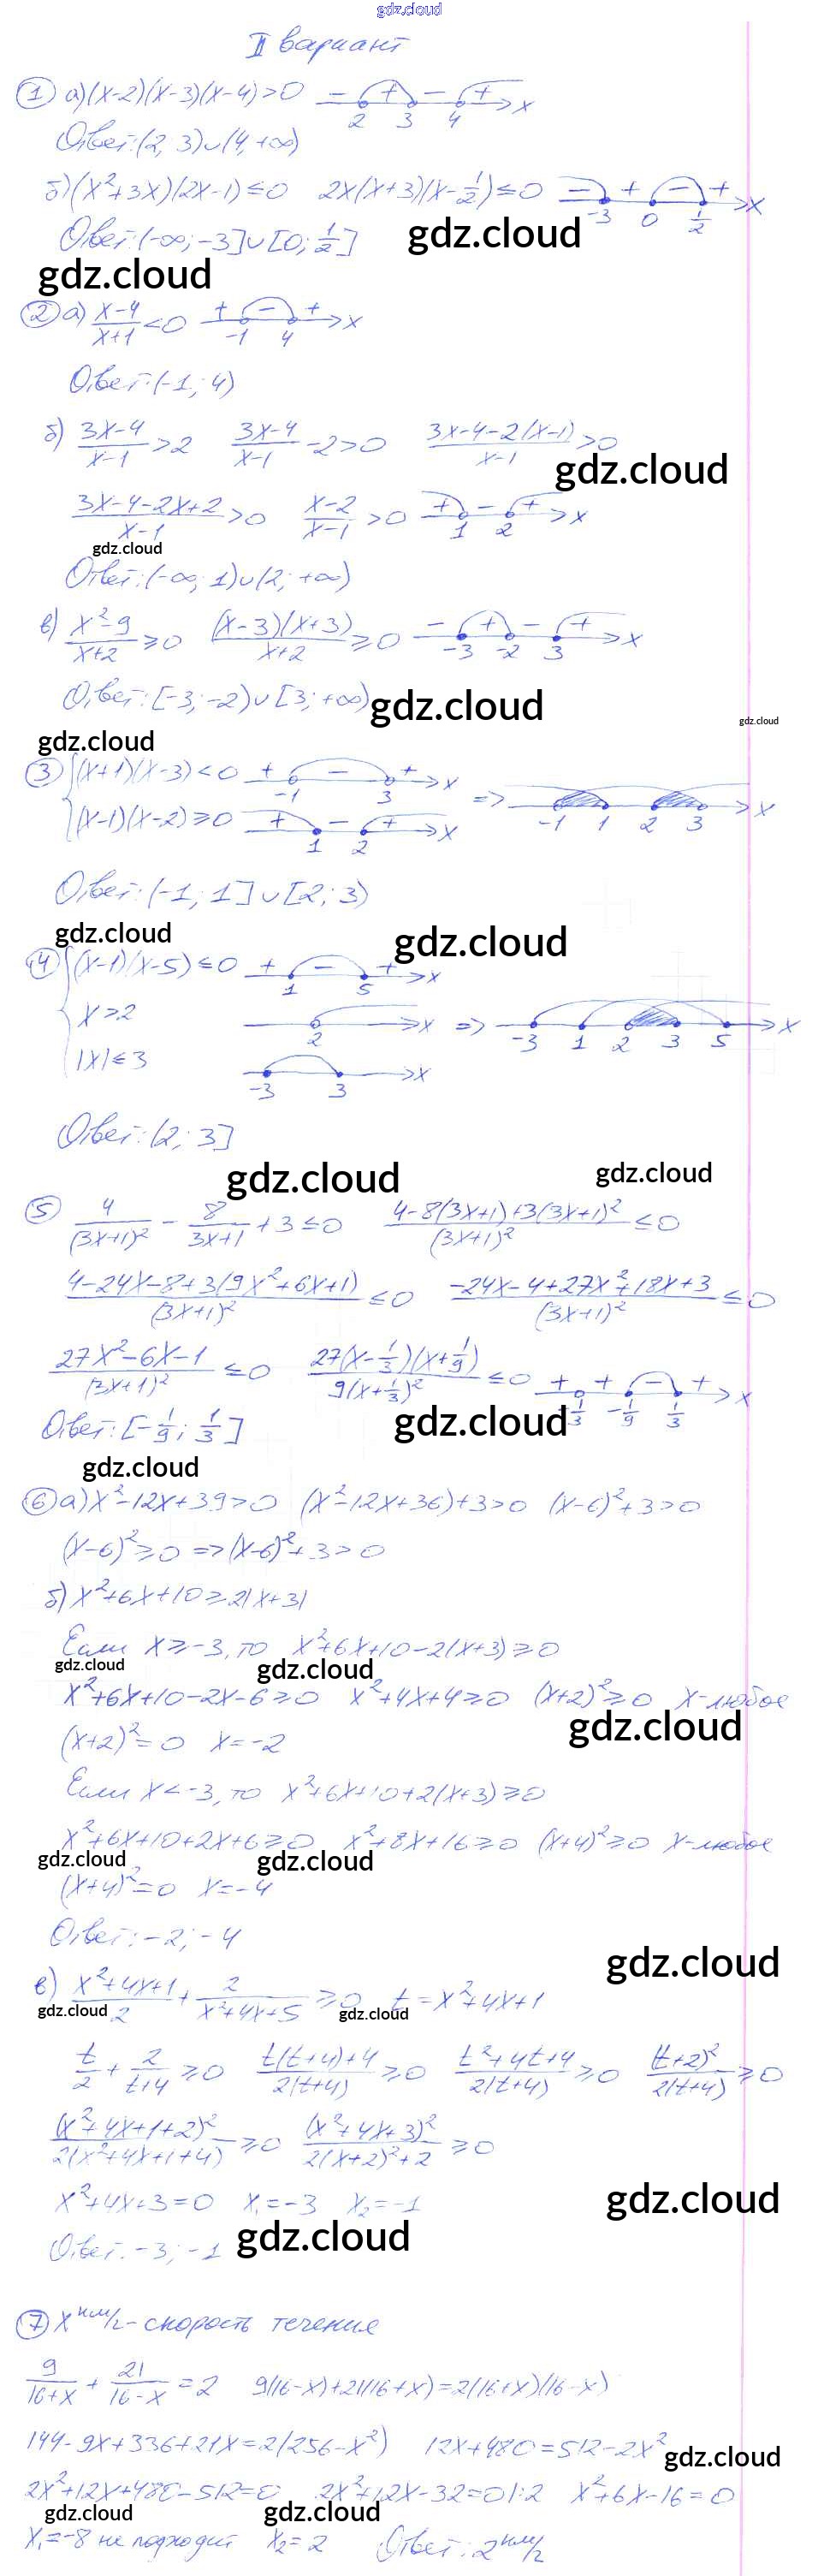 gdz.cloud
II вариант
① а) (x-2)(x-3)(x-4)>0 − + − + 2 3 4 x
Ответ: (2; 3)∪(4; +∞)
б) (x²+3x)(2x-1)≤0 2x(x+3)(x-1/2)≤0 − + − + -3 0 1/2 x
Ответ: (-∞; -3]∪[0; 1/2]
gdz.cloud
gdz.cloud
② а) (x-4)/(x+1)<0 + − + -1 4 x
Ответ: (-1; 4)
б) (3x-4)/(x-1)>2 (3x-4)/(x-1)-2>0 (3x-4-2(x-1))/(x-1)>0
gdz.cloud
(3x-4-2x+2)/(x-1)>0 (x-2)/(x-1)>0 + − + 1 2 x
gdz.cloud
Ответ: (-∞; 1)∪(2; +∞)
в) (x²-9)/(x+2)≥0 ((x-3)(x+3))/(x+2)≥0 − + − + -3 -2 3 x
Ответ: [-3; -2)∪[3; +∞)
gdz.cloud
gdz.cloud
gdz.cloud
③ {(x+1)(x-3)<0 + − + -1 3 x
(x-1)(x-2)≥0 + − + 1 2 x => -1 1 2 3 x
Ответ: (-1; 1]∪[2; 3)
gdz.cloud
gdz.cloud
④ {(x-1)(x-5)≤0 + − + 1 5 x
x>2 2 x => -3 1 2 3 5 x
|x|≤3 -3 3 x
Ответ: (2; 3]
gdz.cloud
gdz.cloud
⑤ 4/(3x+1)² - 8/(3x+1) + 3≤0 (4-8(3x+1)+3(3x+1)²)/(3x+1)²≤0
(4-24x-8+3(9x²+6x+1))/(3x+1)²≤0 (-24x-4+27x²+18x+3)/(3x+1)²≤0
(27x²-6x-1)/(3x+1)²≤0 (27(x-1/3)(x+1/9))/(9(x+1/3)²)≤0 + + − + -1/3 -1/9 1/3 x
Ответ: [-1/9; 1/3]
gdz.cloud
gdz.cloud
⑥ а) x²-12x+39>0 (x²-12x+36)+3>0 (x-6)²+3>0
(x-6)²≥0 => (x-6)²+3>0
б) x²+6x+10≥2|x+3|
Если x≥-3, то x²+6x+10-2(x+3)≥0
gdz.cloud
gdz.cloud
x²+6x+10-2x-6≥0 x²+4x+4≥0 (x+2)²≥0 x-любое
gdz.cloud
(x+2)²=0 x=-2
Если x<-3, то x²+6x+10+2(x+3)≥0
x²+6x+10+2x+6≥0 x²+8x+16≥0 (x+4)²≥0 x-любое
gdz.cloud
gdz.cloud
(x+4)²=0 x=-4
Ответ: -2; -4
gdz.cloud
в) (x²+4x+1)/2 + 2/(x²+4x+5)≥0 t=x²+4x+1
gdz.cloud
gdz.cloud
t/2 + 2/(t+4)≥0 (t(t+4)+4)/(2(t+4))≥0 (t²+4t+4)/(2(t+4))≥0 (t+2)²/(2(t+4))≥0
(x²+4x+1+2)²/(2(x²+4x+1+4))≥0 (x²+4x+3)²/(2(x+2)²+2)≥0
x²+4x+3=0 x₁=-3 x₂=-1
gdz.cloud
Ответ: -3; -1
gdz.cloud
⑦ x км/ч - скорость течения
9/(16+x) + 21/(16-x) = 2 9(16-x)+21(16+x)=2(16+x)(16-x)
144-9x+336+21x=2(256-x²) 12x+480=512-2x²
gdz.cloud
2x²+12x+480-512=0 2x²+12x-32=0|:2 x²+6x-16=0
gdz.cloud
gdz.cloud
x₁=-8 не подходит x₂=2 Ответ: 2 км/ч